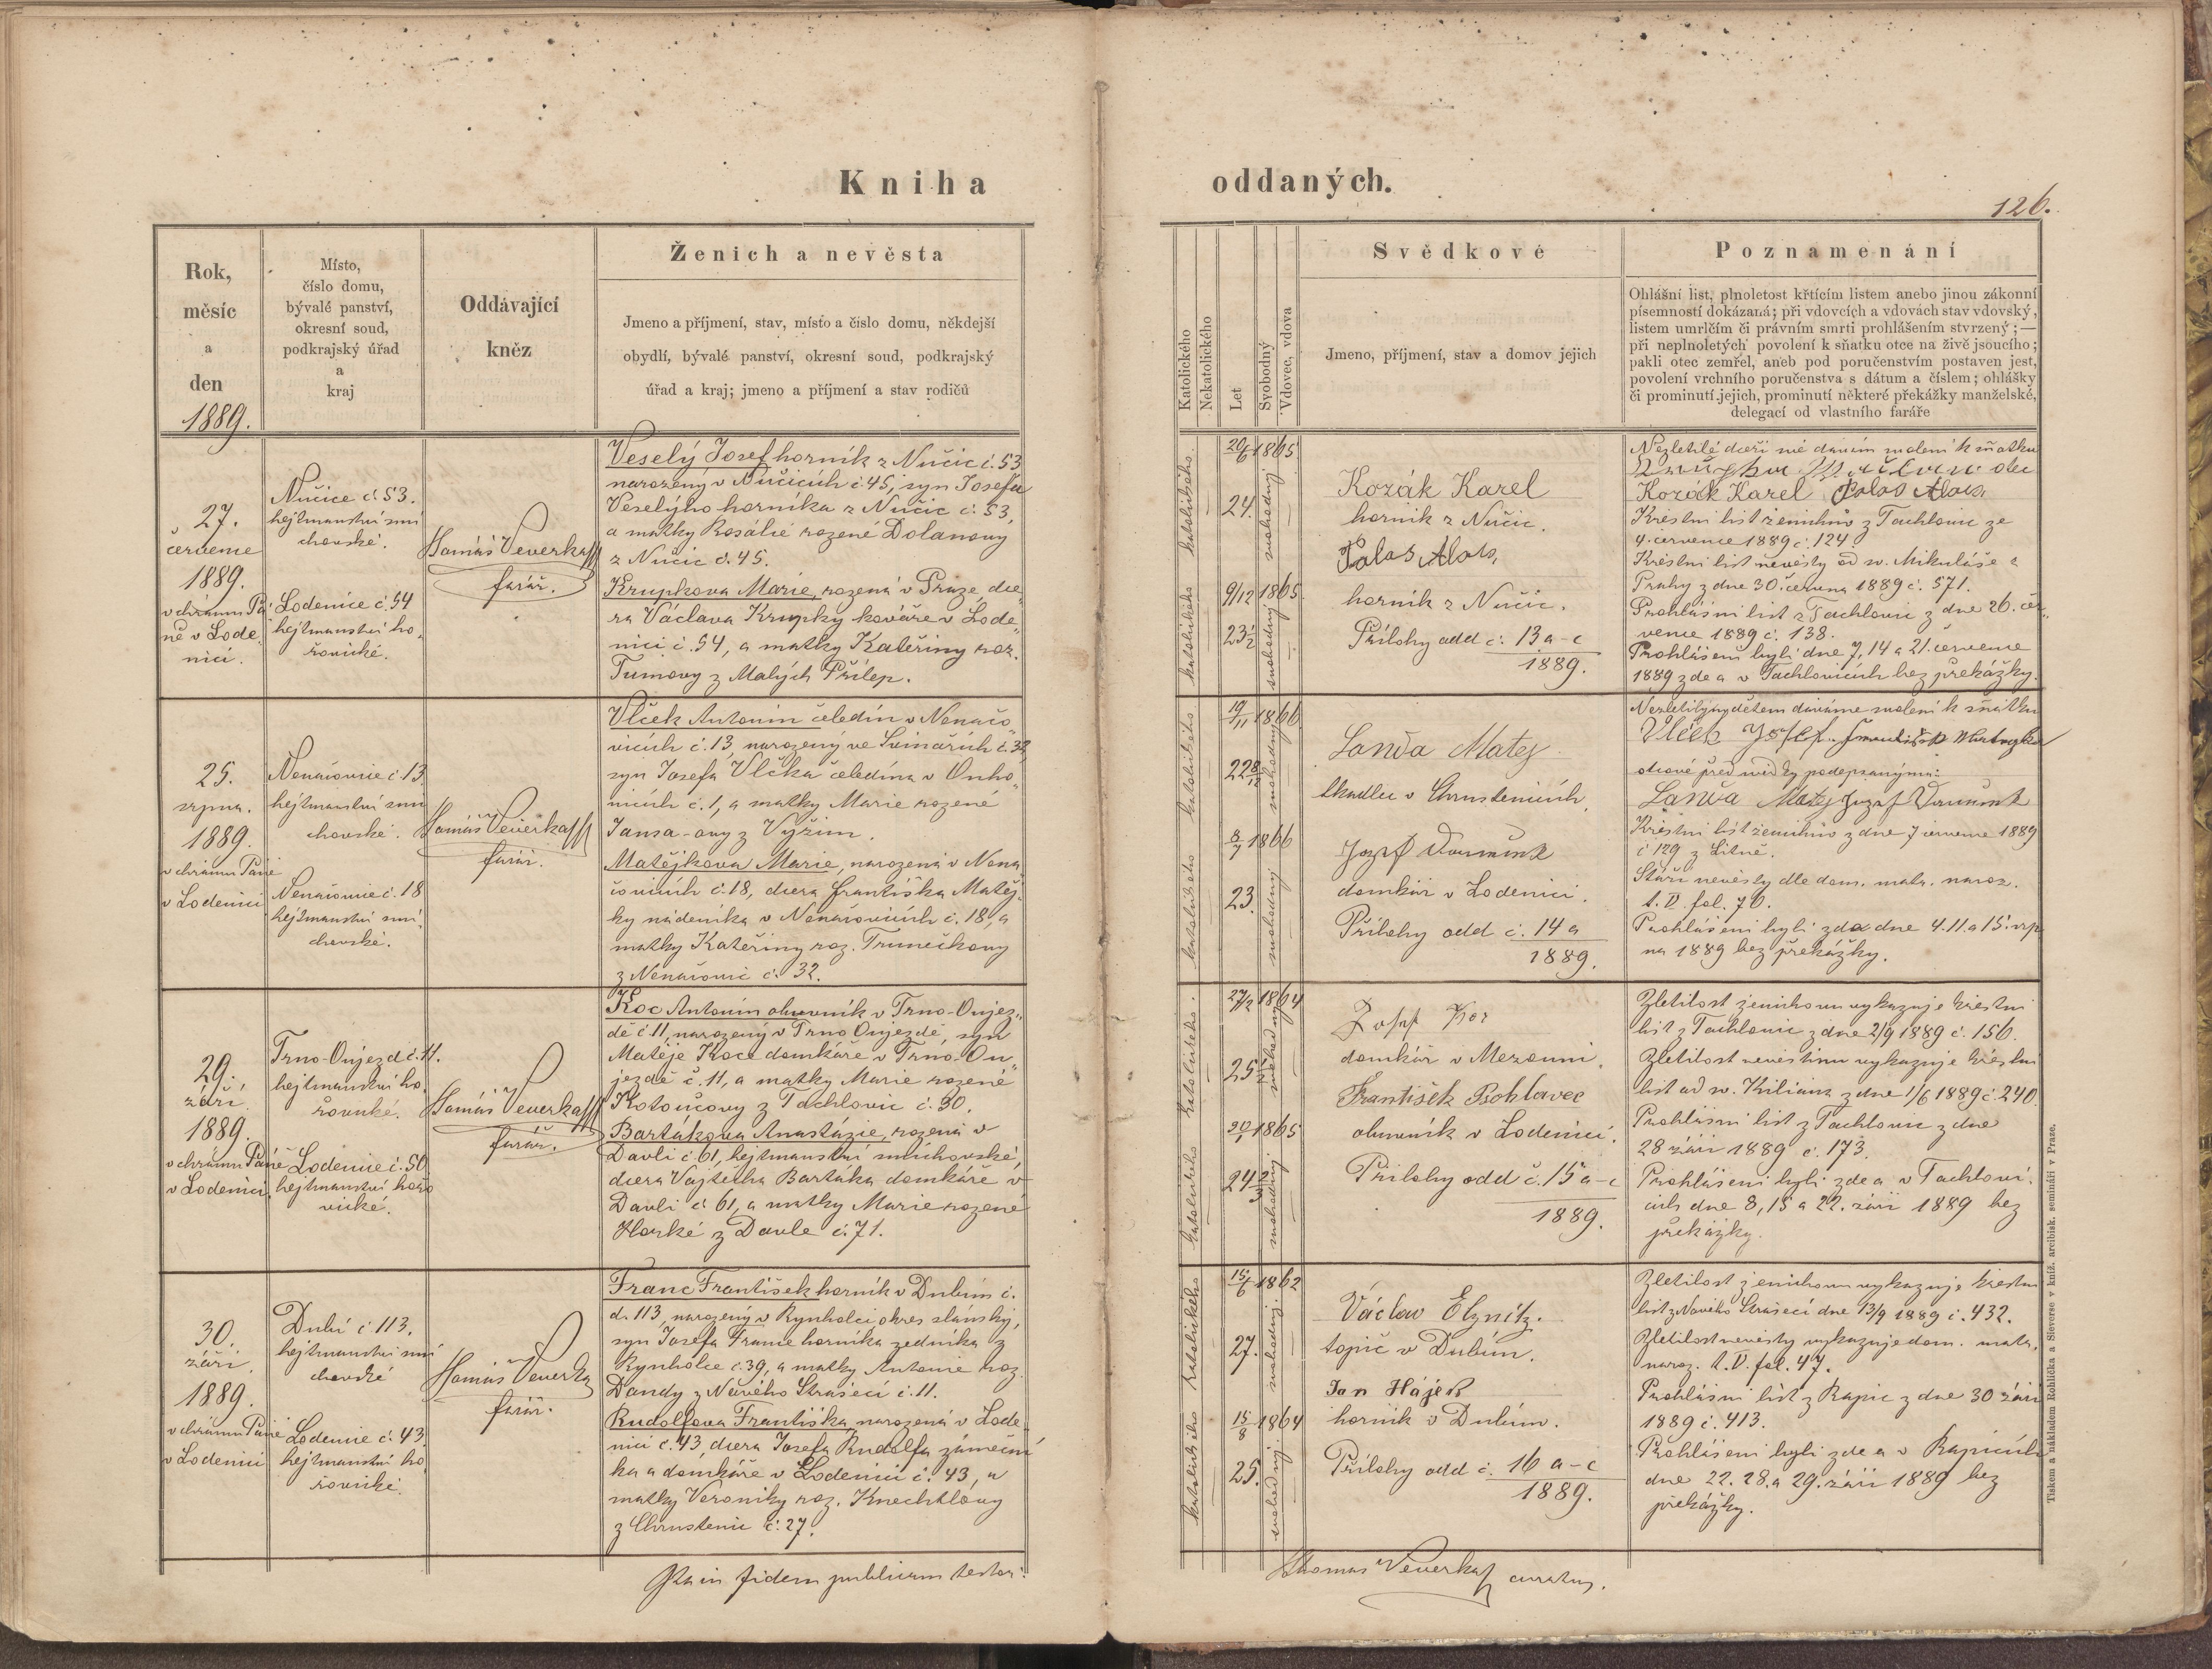 Kniha
oddaných.
126.
Rok,
měsíc
a
den
1889.
Místo,
číslo domu,
bývalé panství,
okresní soud,
podkrajský úřad
a
kraj
Oddávající
kněz
Ženich a nevěsta
Jmeno a příjmení, stav, místo a číslo domu, někdejší
obydlí, bývalé panství, okresní soud, podkrajský
úřad a kraj; jmeno a příjmení a stav rodičů
Katolického
Nekatolického
Let
Svobodný
Vdovec, vdova
Svědkové
Jmeno, příjmení, stav a domov jejich
Poznamenání
Ohlášní list, plnoletost křtícím listem anebo jinou zákonní
písemností dokázaná; při vdovcích a vdovách stav vdovský,
listem umrlčím či právním smrti prohlášením stvrzený; —
při neplnoletých povolení k sňatku otce na živě jsoucího;
pakli otec zemřel, aneb pod poručenstvím postaven jest,
povolení vrchního poručenstva s dátum a číslem; ohlášky
či prominutí jejich, prominutí některé překážky manželské,
delegací od vlastního faráře
27.
července
1889.
v chrámu Pá
ně v Lode
nici.
Nučice č 53.
hejtmanství smi
chovské.
Lodenice č. 54
hejtmanství ho
řovické.
Tomáš Veverka
farář.
Veselý Josef horník z Nučic č. 53
narozený v Nučicích č 45, syn Josefa
Veselýho horníka z Nučic č. 53,
a matky Rosalie rozené Dolanovy
z Nučic č. 45.
Krupkova Marie, rozená v Praze, dce
ra Václava Krupky kováře v Lode„
nici č. 54, a matky Kateřiny roz.
Tumovy z Malých Přílep.
katolického
20/6 1865
24.
svobodný
katolického
9/12 1865
23½
svobodný
Kozák Karel
horník z Nučic.
Palas Alois,
horník z Nučic.
Přílohy odd č. 13 a-c
1889.
Nezletilé dceři mé dávám svolení k sňatku
otec
Kozák Karel Palas Alois
Křestní list ženichův z Tachlovic ze
4. července 1889 č. 124
Křestní list nevěsty od sv. Mikuláše z
Prahy z dne 30. června 1889 č. 571.
Prohlášní list z Tachlovic z dne 26. čer„
vence 1889 č. 138.
Prohlášeni byli dne 7, 14 a 21. července
1889 zde a v Tachlovicích bez překážky.
25.
srpna.
1889.
v chrámu Páně
v Lodenici
Nenačovice č 13
hejtmanství smi
chovské.
Nenačovice č. 18
hejtmanství smi
chovské.
Tomáš Veverka
farář.
Vlček Antonín čeledín v Nenačo
vicích č. 13, narozený ve Svinařích č 32,
syn Josefa Vlčka čeledína v Onho„
nicích č. 1, a matky Marie rozené
Jansa-ovy z Vyžim.
Matějkova Marie, narozená v Nena
čovicích č. 18, dcera Františka Matěj„
ky nádeníka v Nenačovicích č. 18, a
matky Kateřiny roz. Trunečkovy
z Nenačovic č. 32.
katolického
19/11 1866
22 8/12
svobodný
katolického
8/7 1866
23.
svobodný
Landa Matej
tkadlec v Chrustenicích,
Jozef
domkář v Lodenici.
Přílohy odd č. 14 a
1889.
Nezletilým dětem dáváme svolení k sňatku
Vlček Josef.
otcové před svědky podepsanýma:
Landa Matej Jozef
Křestní list ženichův z dne 7 července 1889
č 129 z Litně.
Stáří nevěsty dle dom. matr. naroz.
t. V. fol. 70.
Prohlášeni byli zde dne 4. 11. a 15. srp
na 1889 bez překážky.
29.
září
1889.
v chrámu Páně
v Lodenici
Trno-Oujezd č. 11.
hejtmanství ho
řovické.
Lodenice č. 50
hejtmanství hořo
vické.
Tomáš Veverka
farář.
Koc Antonín obuvník v Trno-Oujez„
dě č 11, narozený v Trno Oujezdě, syn
Matěje Koce domkáře v Trno-Ou„
jezdě č. 11, a matky Marie rozené
Kotoučovy z Tachlovic č. 30.
Bartákova Anastázie, rozená v
Davli č 61, hejtmanství smíchovské,
dcera Vojtěcha Bartáka domkáře v
Davli č 61, a matky Marie rozené
Horké z Davle č. 71.
katolického
27/2 1864
25
svobodný
katolického
20/1 1865
24
svobodný
Josef Koc
domkář v Mezouni.
František Pohlavec
obuvník v Lodenici.
Přílohy odd č. 15 a-c
1889.
Zletilost ženichovu vykazuje křestní
list z Tachlovic z dne 2/9 1889 č. 156.
Zletilost nevěstinu vykazuje křestní
list od sv. Kiliana z dne 1/6 1889 č. 240
Prohlášní list z Tachlovic z dne
28 září 1889 č. 173.
Prohlášeni byli zde a v Tachlovi„
cích dne 8, 15 a 22. září 1889 bez
překážky.
30.
září
1889.
v chrámu Páně
v Lodenici
Dubí č 113.
hejtmanství smi
chovské
Lodenice č. 43
hejtmanství ho
řovické.
Tomáš Veverka
farář.
Franc František horník v Dubím č.
d. 113, narozený v Rynholci, okres slánský,
syn Josefa France horníka zedníka z
Rynholce č. 39, a matky Antonie roz.
Dandy z Nového Strašecí č. 11.
Rudolfova Františka, narozená v Lode„
nici č. 43, dcera Josefa Rudolfa zámeční
ka a domkáře v Lodenici č. 43, a
matky Veroniky roz. Knechtlovy
z Chrustenic č. 27.
katolického
15/6 1862
27.
svobodný
katolického
15/8 1864
25.
svobodný
Václav Elznitz.
topič v Dubím.
Jan Hájek
horník v Dubím.
Přílohy odd č. 16 a-c
1889.
Zletilost ženichovu vykazuje křestní
list z Nového Strašecí dne 13/9 1889 č. 432.
Zletilost nevěsty vykazuje dom. matr.
naroz. t. V. fol. 47.
Prohlášní list z Rapic z dne 30 září
1889 č. 413.
Prohlášeni byli zde a v Rapicích
dne 22. 28. a 29. září 1889 bez
překážky.
in fidem publicam testor:
Thomas Veverka curatus.
Tiskem a nákladem Rohlíčka a Sieverse v kníž. arcibisk. semináři v Praze.